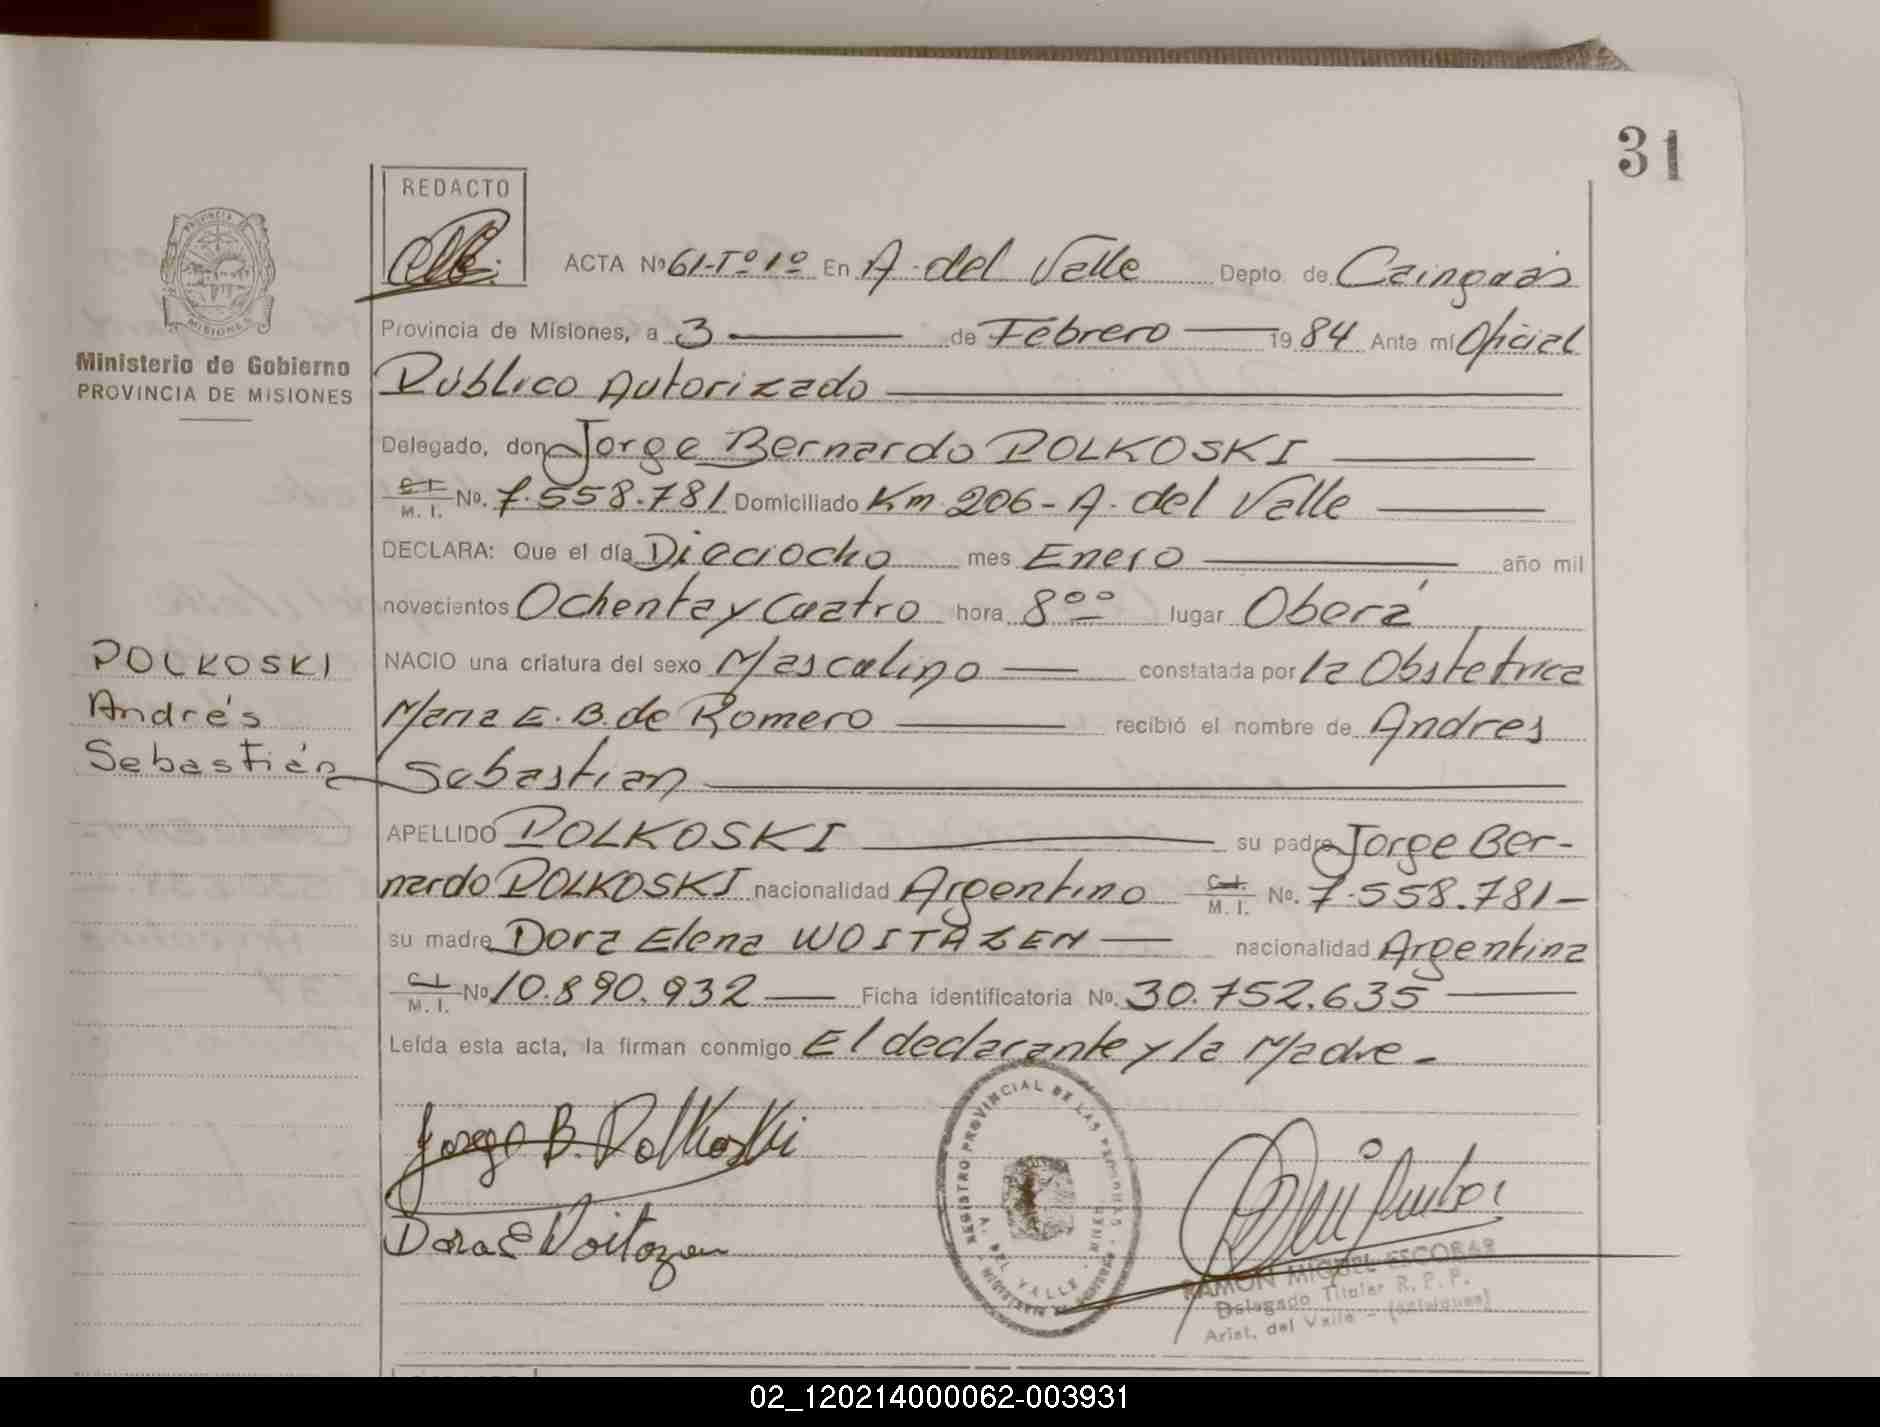 31
REDACTO
PROVINCIA
MISIONES
Ministerio de Gobierno
PROVINCIA DE MISIONES
ACTA Nº 61-Tº1º En A. del Valle Depto. de Cainguás
Provincia de Misiones, a 3 de Febrero 1984 Ante mí Oficial
Público Autorizado
Delegado, don Jorge Bernardo POLKOSKI
C.I. M.I. No. 7.558.781 Domiciliado Km. 206 - A. del Valle
DECLARA: Que el día Dieciocho mes Enero año mil
novecientos Ochenta y Cuatro hora 8 ºº lugar Oberá
NACIO una criatura del sexo Masculino constatada por la Obstetrica
Maria E. B. de Romero recibió el nombre de Andres
Sebastian
POLKOSKI
Andrés
Sebastián
APELLIDO POLKOSKI su padre Jorge Ber-
nardo POLKOSKI nacionalidad Argentino C.I. M.I. No. 7.558.781-
su madre Dora Elena WOITAZEN nacionalidad Argentina
C.I. M.I. No. 10.890.932 Ficha identificatoria No. 30.752.635
Leída esta acta, la firman conmigo El declarante y la Madre -
Jorge B. Polkoski
Dora E Woitazen
REGISTRO PROVINCIAL DE LAS PERSONAS
A. DEL VALLE
RAMON MIGUEL ESCOBAR
Delegado Titular R. P. P.
Arist. del Valle - (Misiones)
02_120214000062-003931